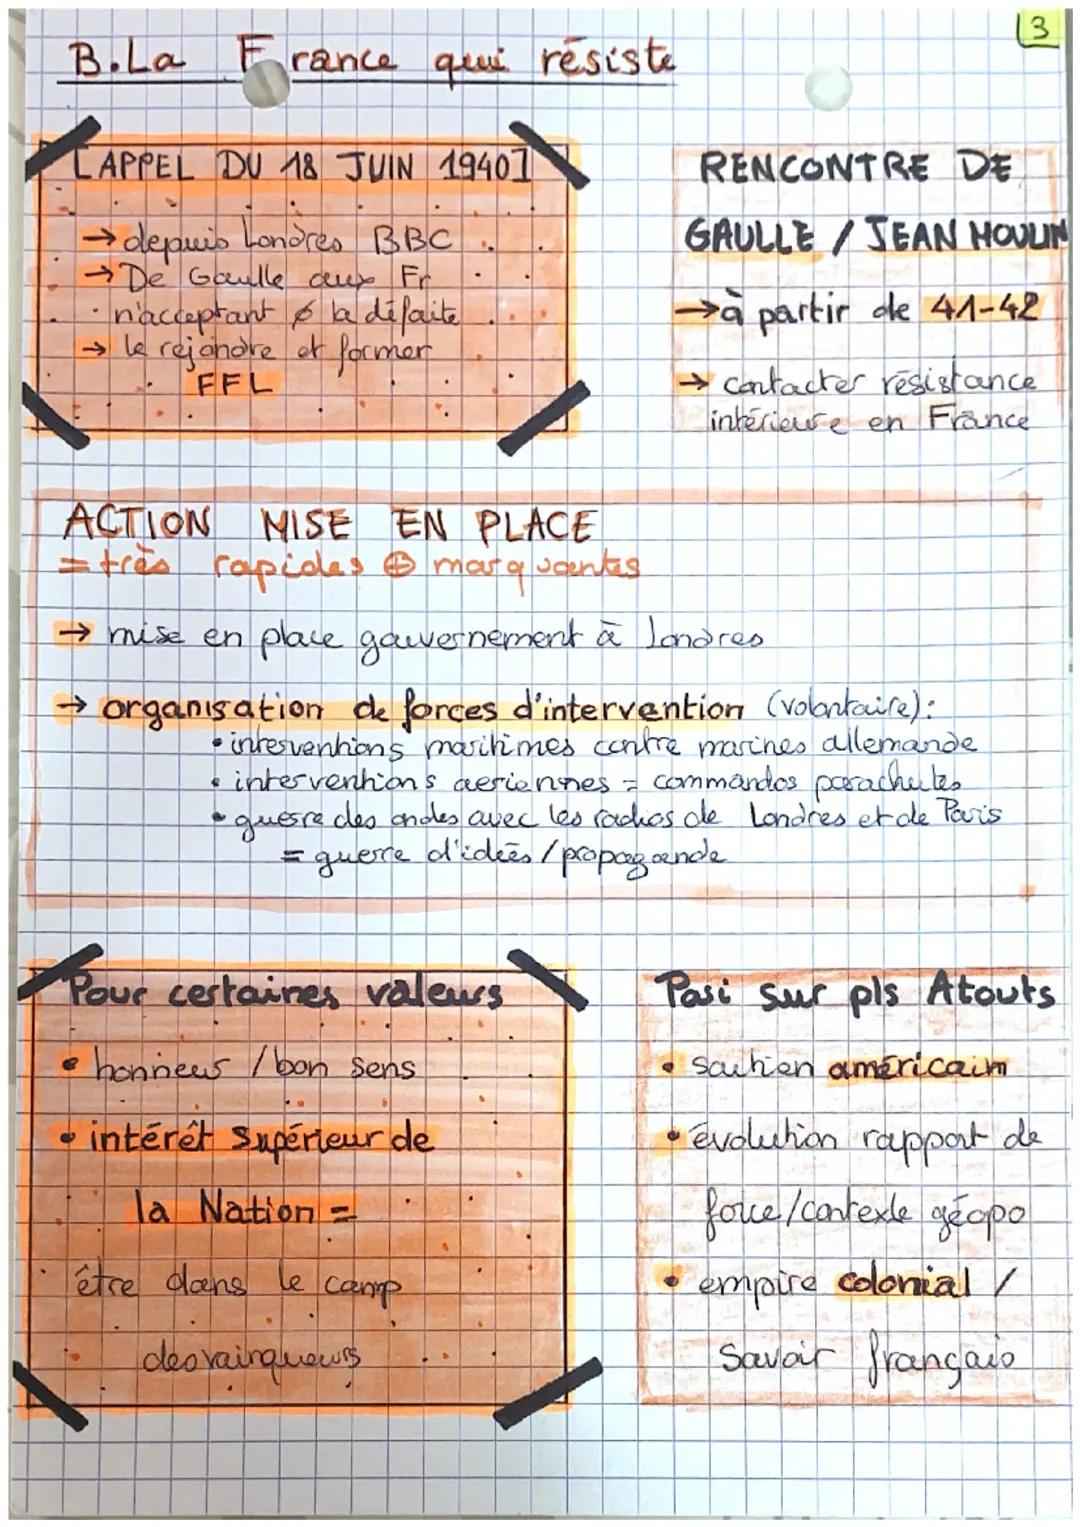 3
B. La France qui résiste
[APPEL DU 18 JUIN 1940]
→ depuis Londres BBC
→ De Gaulle aux Fr
n'acceptant ∅ la défaite
→ le rejoindre et former
FFL
RENCONTRE DE
GAULLE / JEAN MOULIN
→ à partir de 41-42
→ contacter résistance
intérieure en France
ACTION MISE EN PLACE
= très rapides ⊕ marquantes
→ mise en place gouvernement à Londres
→ organisation de forces d'intervention (volontaire):
• interventions maritimes contre marines allemande
• interventions aeriennes = commandos parachutes
• guerre des ondes avec les radios de Londres et de Paris
= guerre d'idées / propagande
Pour certaines valeurs
• honneur / bon sens
• intérêt supérieur de
la Nation =
être dans le camp
des vainqueurs
Pari sur pls Atouts
• soutien américain
• évolution rapport de
force/contexte géopo
• empire colonial /
savoir français